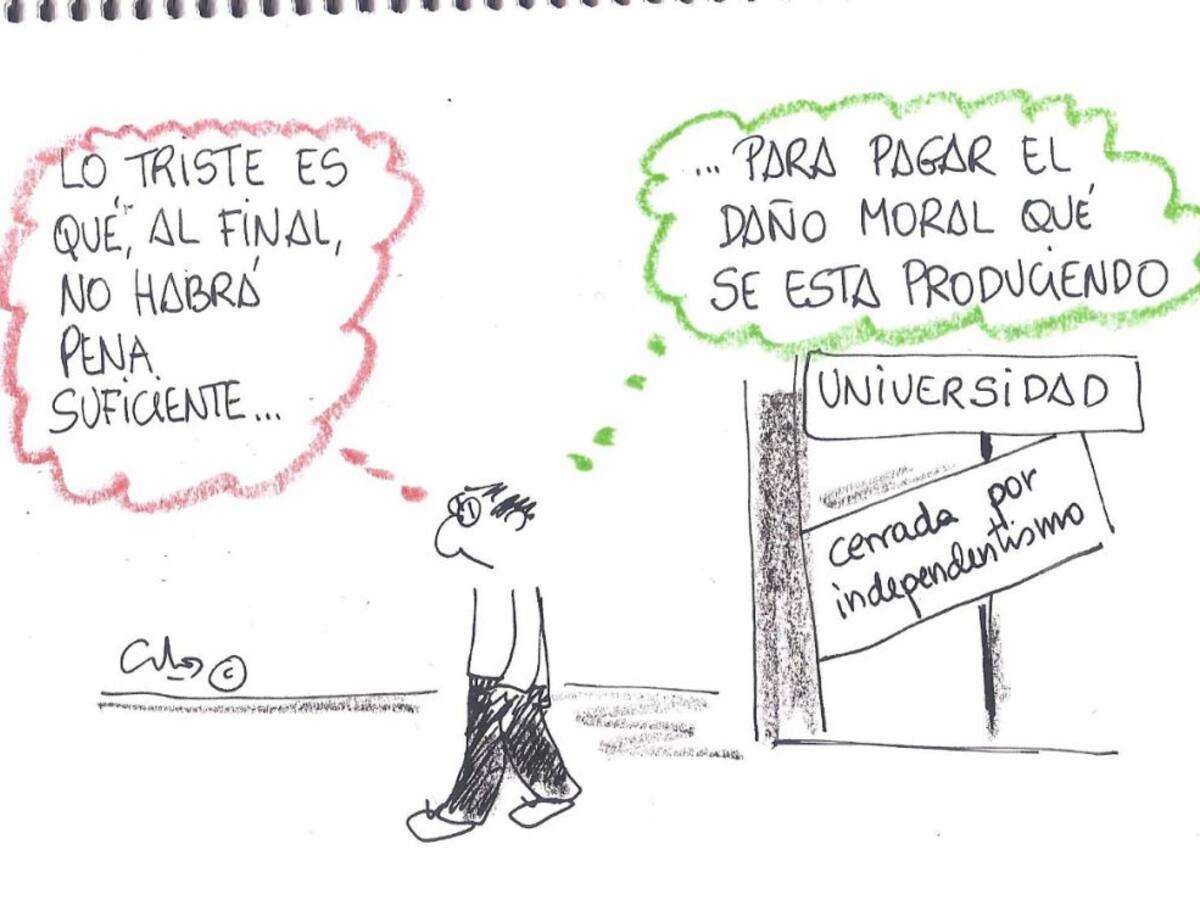 LO TRISTE ES
QUÉ, AL FINAL,
NO HABRÁ
PENA
SUFICIENTE...
... PARA PAGAR EL
DAÑO MORAL QUÉ
SE ESTA PRODUCIENDO
UNIVERSIDAD
cerrada por
independentismo
©